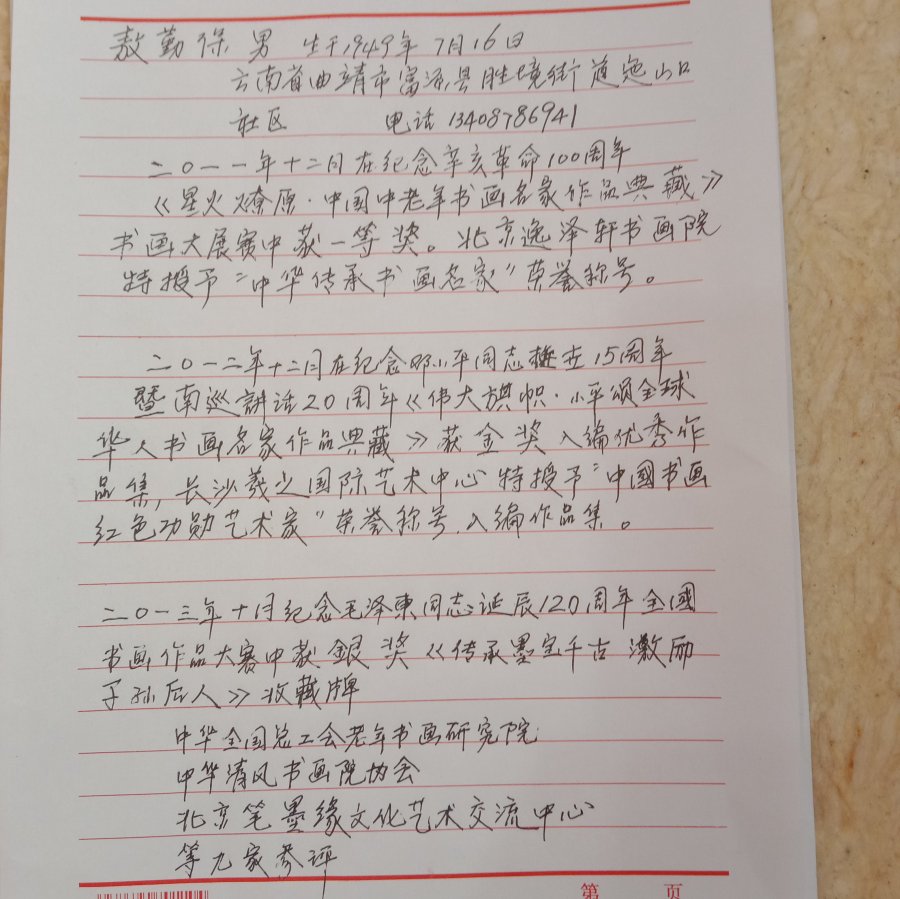 敖勤保 男 生于1949年7月16日
云南省曲靖市富源县胜境街道迤山口
社区 电话13408786941
二〇一一年十二月在纪念辛亥革命100周年
《星火燎原·中国中老年书画名家作品典藏》
书画大展赛中获一等奖。北京逸泽轩书画院
特授予"中华传承书画名家"荣誉称号。
二〇一二年十二月在纪念邓小平同志逝世15周年
暨南巡讲话20周年《伟大旗帜·小平颂全球
华人书画名家作品典藏》获金奖入编优秀作
品集,长沙羲之国际艺术中心特授予"中國书画
红色功勋艺术家"荣誉称号,入编作品集。
二〇一三年十月纪念毛泽東同志诞辰120周年全國
书画作品大赛中获銀奖《传承墨宝千古激励
子孙后人》收藏牌
中华全国总工会老年书画研究院
中华清风书画院协会
北京笔墨缘文化艺术交流中心
等九家参评
第 页